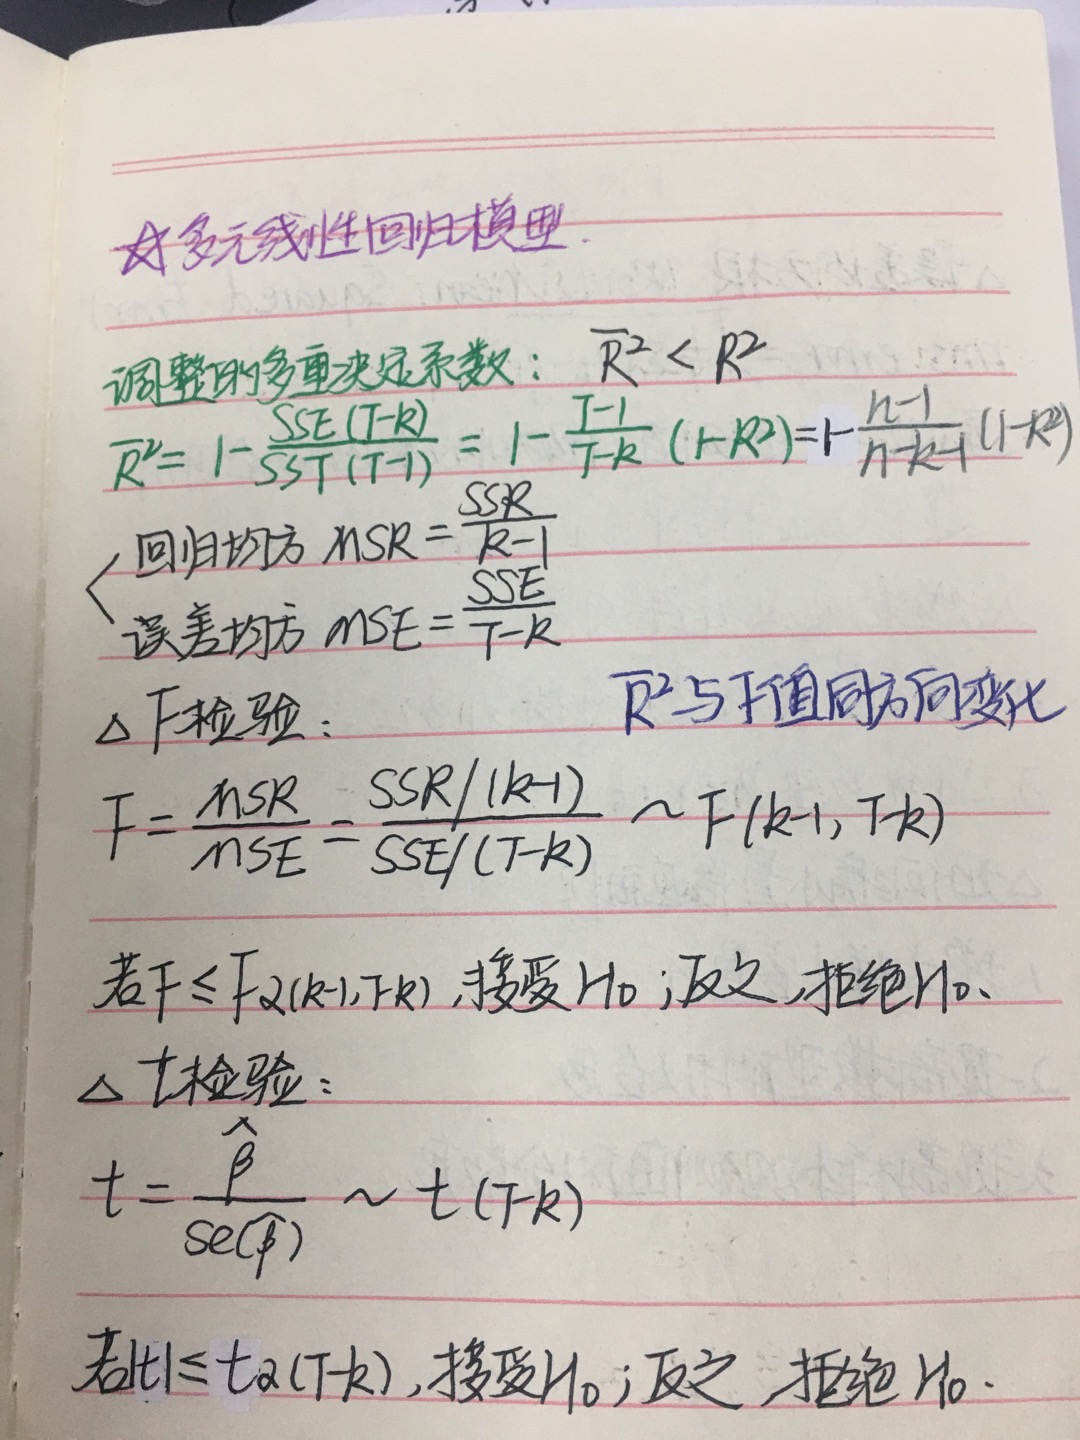 ☆多元线性回归模型.
调整的多重决定系数: R̅² < R²
R̅² = 1 - SSE(T-k)/SST(T-1) = 1 - (T-1)/(T-k) (1-R²) = 1 - (n-1)/(n-k-1) (1-R²)
回归均方 MSR = SSR/(k-1)
误差均方 MSE = SSE/(T-k)
△ F检验: R̅²与F值同方向变化
F = MSR/MSE = (SSR/(k-1))/(SSE/(T-k)) ~ F(k-1, T-k)
若F ≤ Fα(k-1, T-k), 接受H₀; 反之, 拒绝H₀.
△ t检验:
t = β̂/se(β̂) ~ t(T-k)
若|t| ≤ tα(T-k), 接受H₀; 反之, 拒绝H₀.